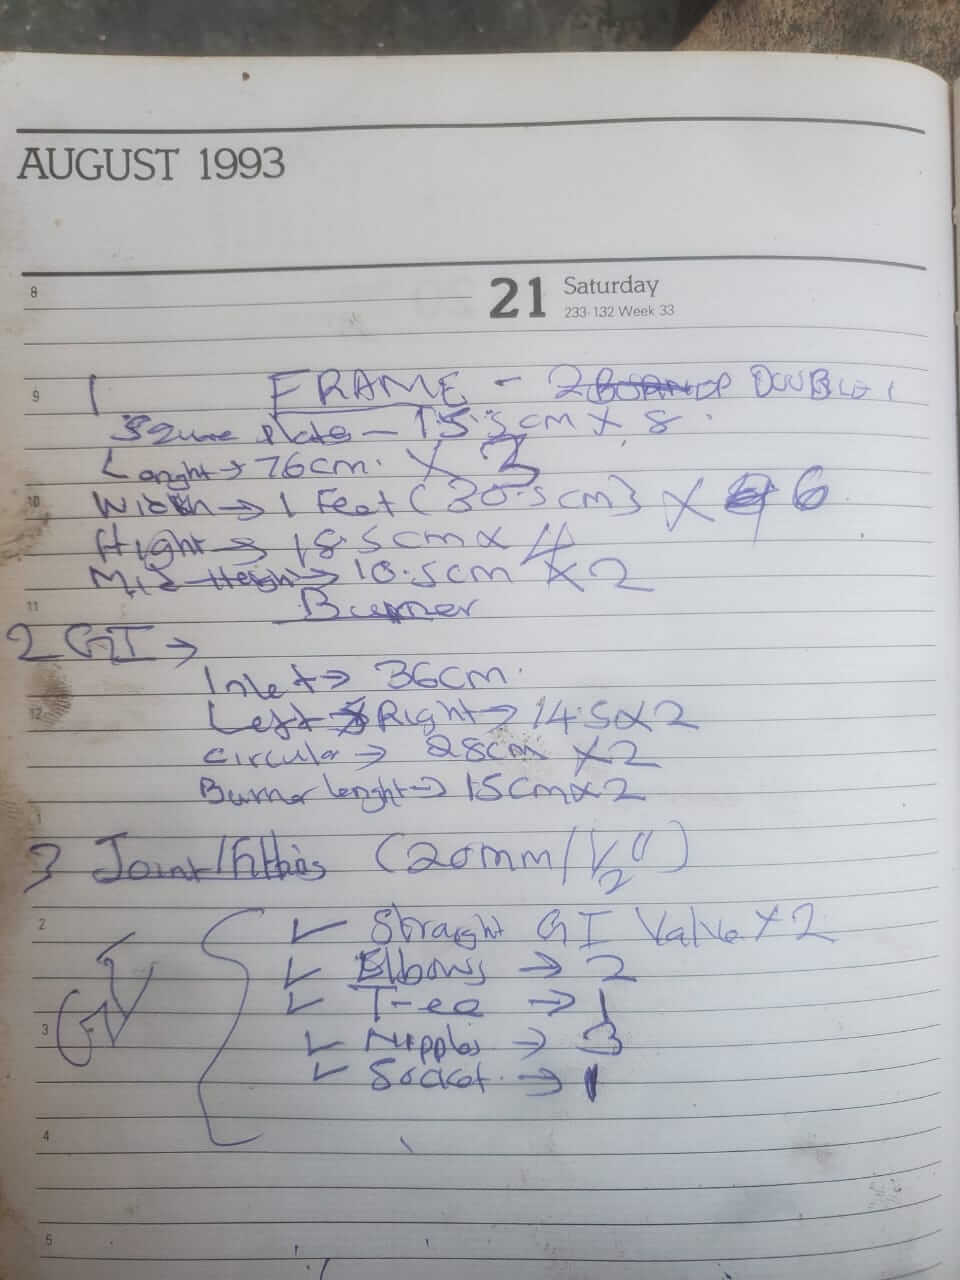 AUGUST 1993
21 Saturday
233-132 Week 33
8
9
10
11
12
1
2
3
4
5
1 FRAME - DOUBLE
Square plate - 15.5cm x 8
Lenght → 76cm. X 3
Width → 1 Feet (30.5cm) X 6
Hight → 18.5cm x 4
Mid-Heigh → 10.5cm X 2
Burner
2 GI →
Inlet → 36cm.
Left & Right → 14.5 x 2
Circular → 28cm X 2
Burner lenght → 15cm x 2
3 Joint/fittins (20mm/½")
✓ Straight GI Valve X 2
✓ Elbows → 2
✓ T-ee → 1
✓ Nipples → 3
✓ Socket → 1